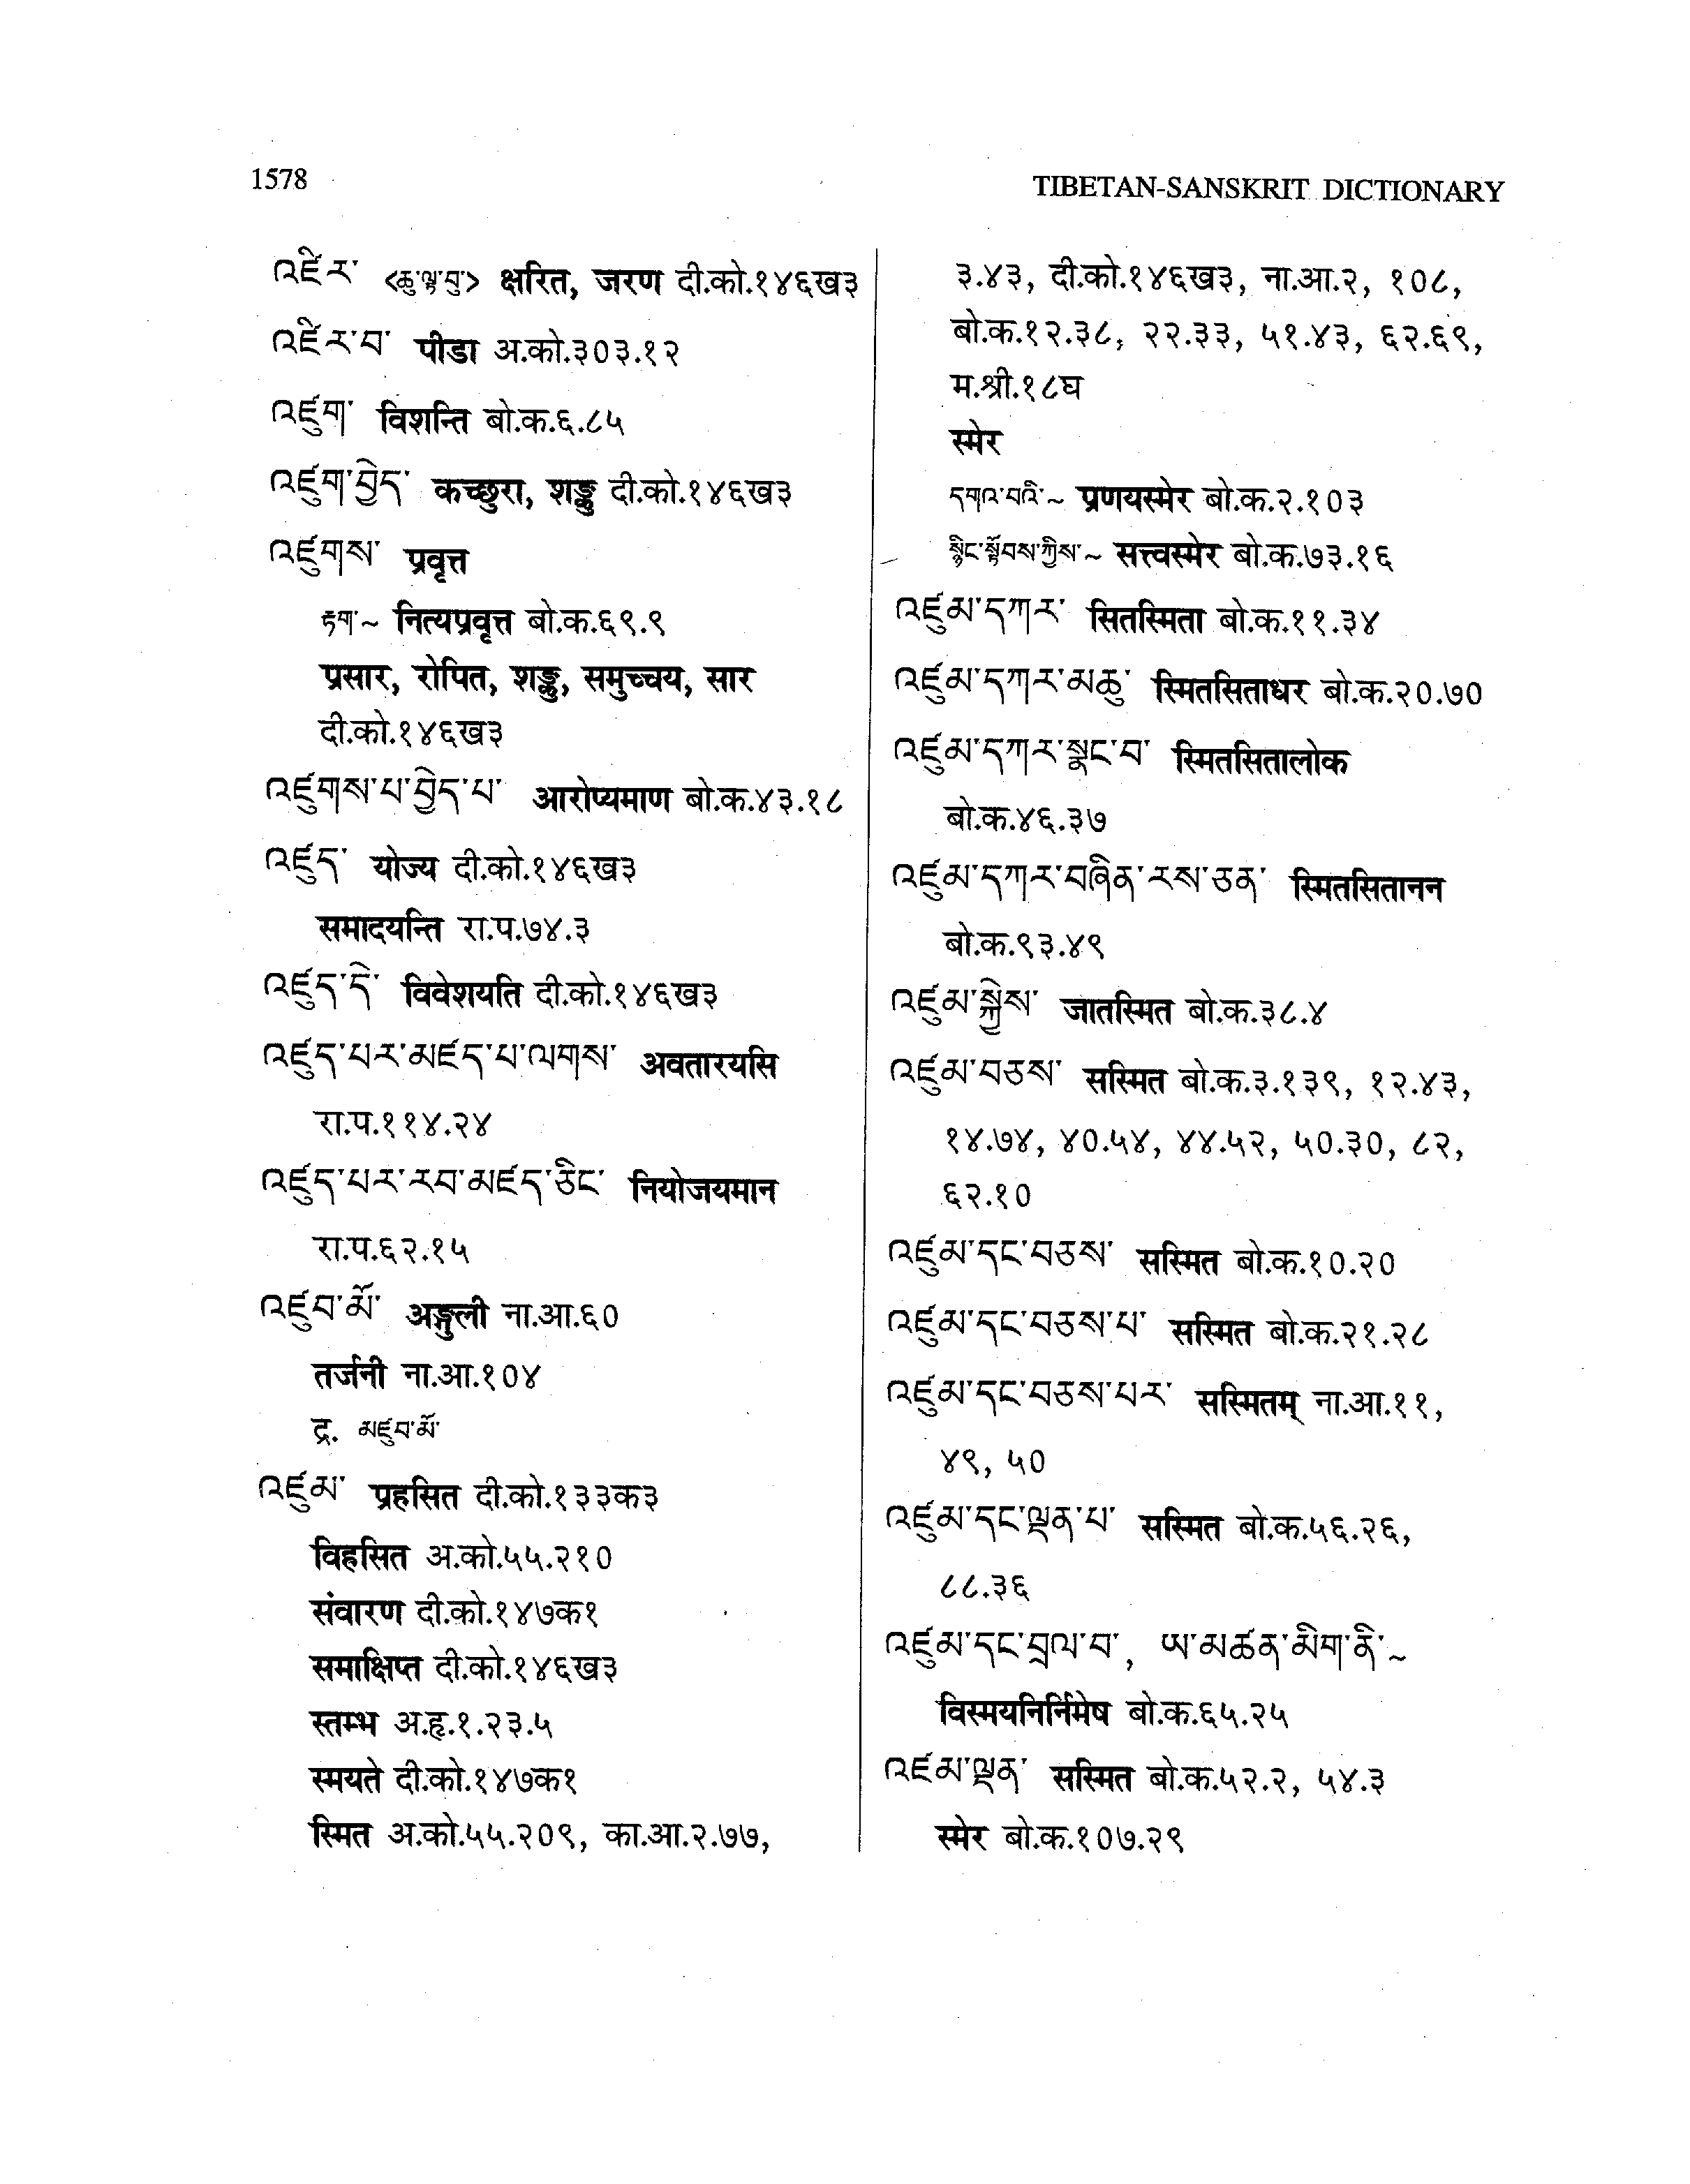 1578
TIBETAN-SANSKRIT DICTIONARY
འཛིར་ <ཆུ་ལྟ་བུ> क्षरित, जरण दी.को.१४६ख३
འཛིར་བ་ पीडा अ.को.३०३.१२
འཛུག་ विशन्ति बो.क.६.८५
འཛུག་བྱེད་ कच्छुरा, शङ्कु दी.को.१४६ख३
འཛུགས་ प्रवृत्त
རྟག་~ नित्यप्रवृत्त बो.क.६९.९
प्रसार, रोपित, शङ्कु, समुच्चय, सार
दी.को.१४६ख३
འཛུགས་པ་བྱེད་པ་ आरोप्यमाण बो.क.४३.१८
འཛུད་ योज्य दी.को.१४६ख३
समादयन्ति रा.प.७४.३
འཛུད་དེ་ विवेशयति दी.को.१४६ख३
འཛུད་པར་མཛད་པ་ལགས་ अवतारयसि
रा.प.११४.२४
འཛུད་པར་རབ་མཛད་ཅིང་ नियोजयमान
रा.प.६२.१५
འཛུབ་མོ་ अङ्गुली ना.आ.६०
तर्जनी ना.आ.१०४
द्र. མཛུབ་མོ་
འཛུམ་ प्रहसित दी.को.१३३क३
विहसित अ.को.५५.२१०
संवारण दी.को.१४७क१
समाक्षिप्त दी.को.१४६ख३
स्तम्भ अ.हृ.१.२३.५
स्मयते दी.को.१४७क१
स्मित अ.को.५५.२०९, का.आ.२.७७,
३.४३, दी.को.१४६ख३, ना.आ.२, १०८,
बो.क.१२.३८, २२.३३, ५१.४३, ६२.६९,
म.श्री.१८घ
स्मेर
དགའ་བའི་~ प्रणयस्मेर बो.क.२.१०३
སྙིང་སྟོབས་ཀྱིས་~ सत्त्वस्मेर बो.क.७३.१६
འཛུམ་དཀར་ सितस्मिता बो.क.११.३४
འཛུམ་དཀར་མཆུ་ स्मितसिताधर बो.क.२०.७०
འཛུམ་དཀར་སྣང་བ་ स्मितसितालोक
बो.क.४६.३७
འཛུམ་དཀར་བཞིན་རས་ཅན་ स्मितसितानन
बो.क.९३.४९
འཛུམ་སྐྱེས་ जातस्मित बो.क.३८.४
འཛུམ་བཅས་ सस्मित बो.क.३.१३९, १२.४३,
१४.७४, ४०.५४, ४४.५२, ५०.३०, ८२,
६२.१०
འཛུམ་དང་བཅས་ सस्मित बो.क.१०.२०
འཛུམ་དང་བཅས་པ་ सस्मित बो.क.२१.२८
འཛུམ་དང་བཅས་པར་ सस्मितम् ना.आ.११,
४९, ५०
འཛུམ་དང་ལྡན་པ་ सस्मित बो.क.५६.२६,
८८.३६
འཛུམ་དང་བྲལ་བ་, ཡ་མཚན་མིག་ནི་~
विस्मयनिर्निमेष बो.क.६५.२५
འཛམ་ལྡན་ सस्मित बो.क.५२.२, ५४.३
स्मेर बो.क.१०७.२९